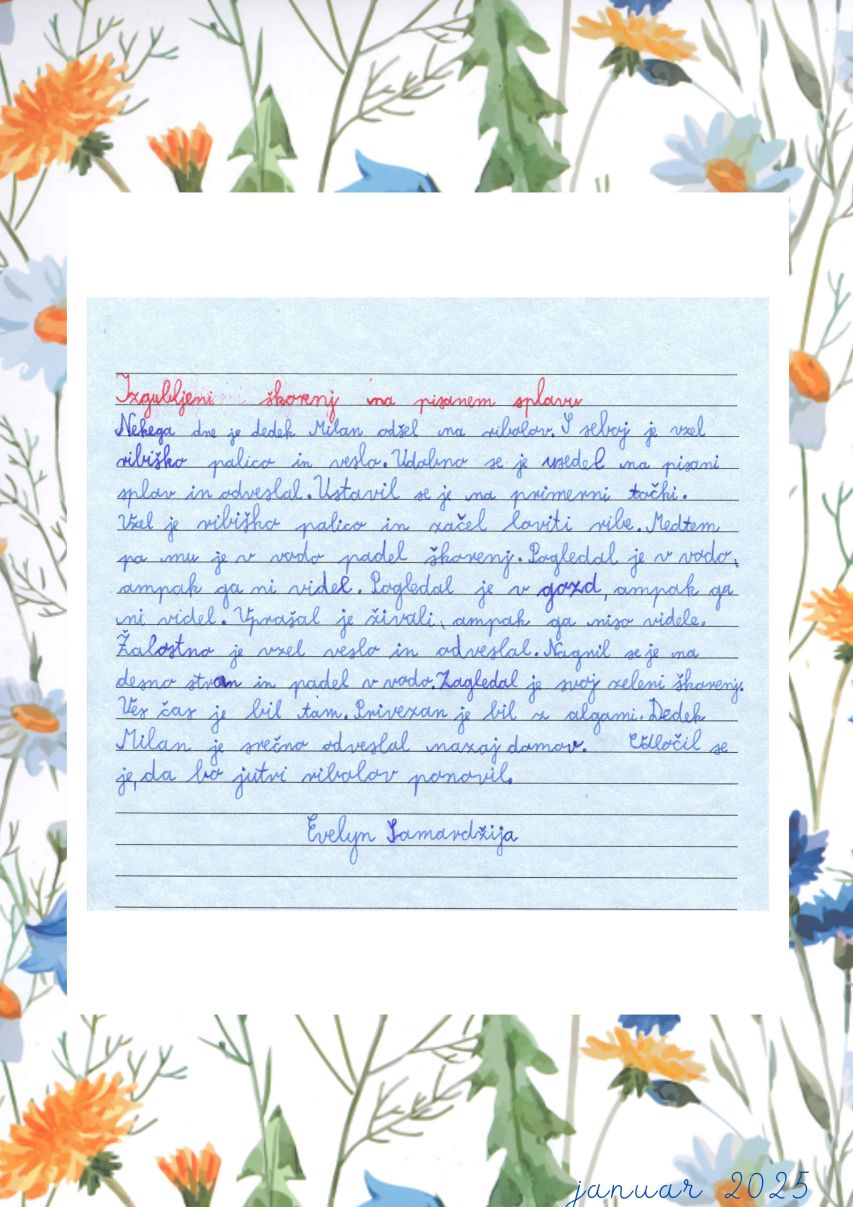 Izgubljeni škorenj na pisanem splavu
Nekega dne je dedek Milan odšel na ribolov. S seboj je vzel
ribiško palico in veslo. Udobno se je usedel na pisani
splav in odveslal. Ustavil se je na primerni točki.
Vzel je ribiško palico in začel loviti ribe. Medtem
pa mu je v vodo padel škorenj. Pogledal je v vodo,
ampak ga ni videl. Pogledal je v gozd, ampak ga
ni videl. Vprašal je živali, ampak ga niso videle.
Žalostno je vzel veslo in odveslal. Nagnil se je na
desno stran in padel v vodo. Zagledal je svoj zeleni škorenj.
Ves čas je bil tam. Privezan je bil z algami. Dedek
Milan je srečno odveslal nazaj domov. Odločil se
je, da bo jutri ribolov ponovil.
Evelyn Samardžija
januar 2025